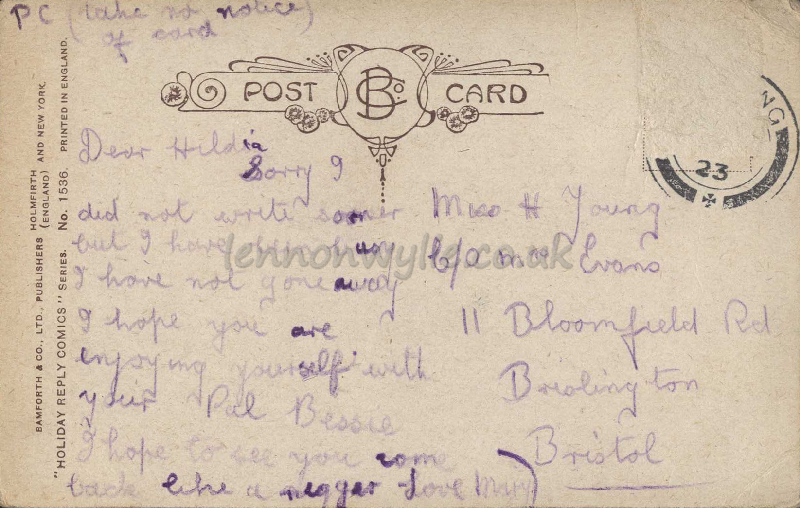 PC (take no notice)
of card
POST CARD
BCo.
BAMFORTH & CO., LTD., PUBLISHERS HOLMFIRTH (ENGLAND) AND NEW YORK.
"HOLIDAY REPLY COMICS" SERIES. No. 1536. PRINTED IN ENGLAND.
NG
23
Dear Hilda
Sorry I
did not write sooner
but I have been busy
I have not gone away
I hope you are
enjoying yourself with
your Pal Bessie
I hope to see you come
back like a nigger Love Mary
Miss H Young
C/o Mrs Evans
11 Bloomfield Rd
Brislington
Bristol
lennonwylie.co.uk